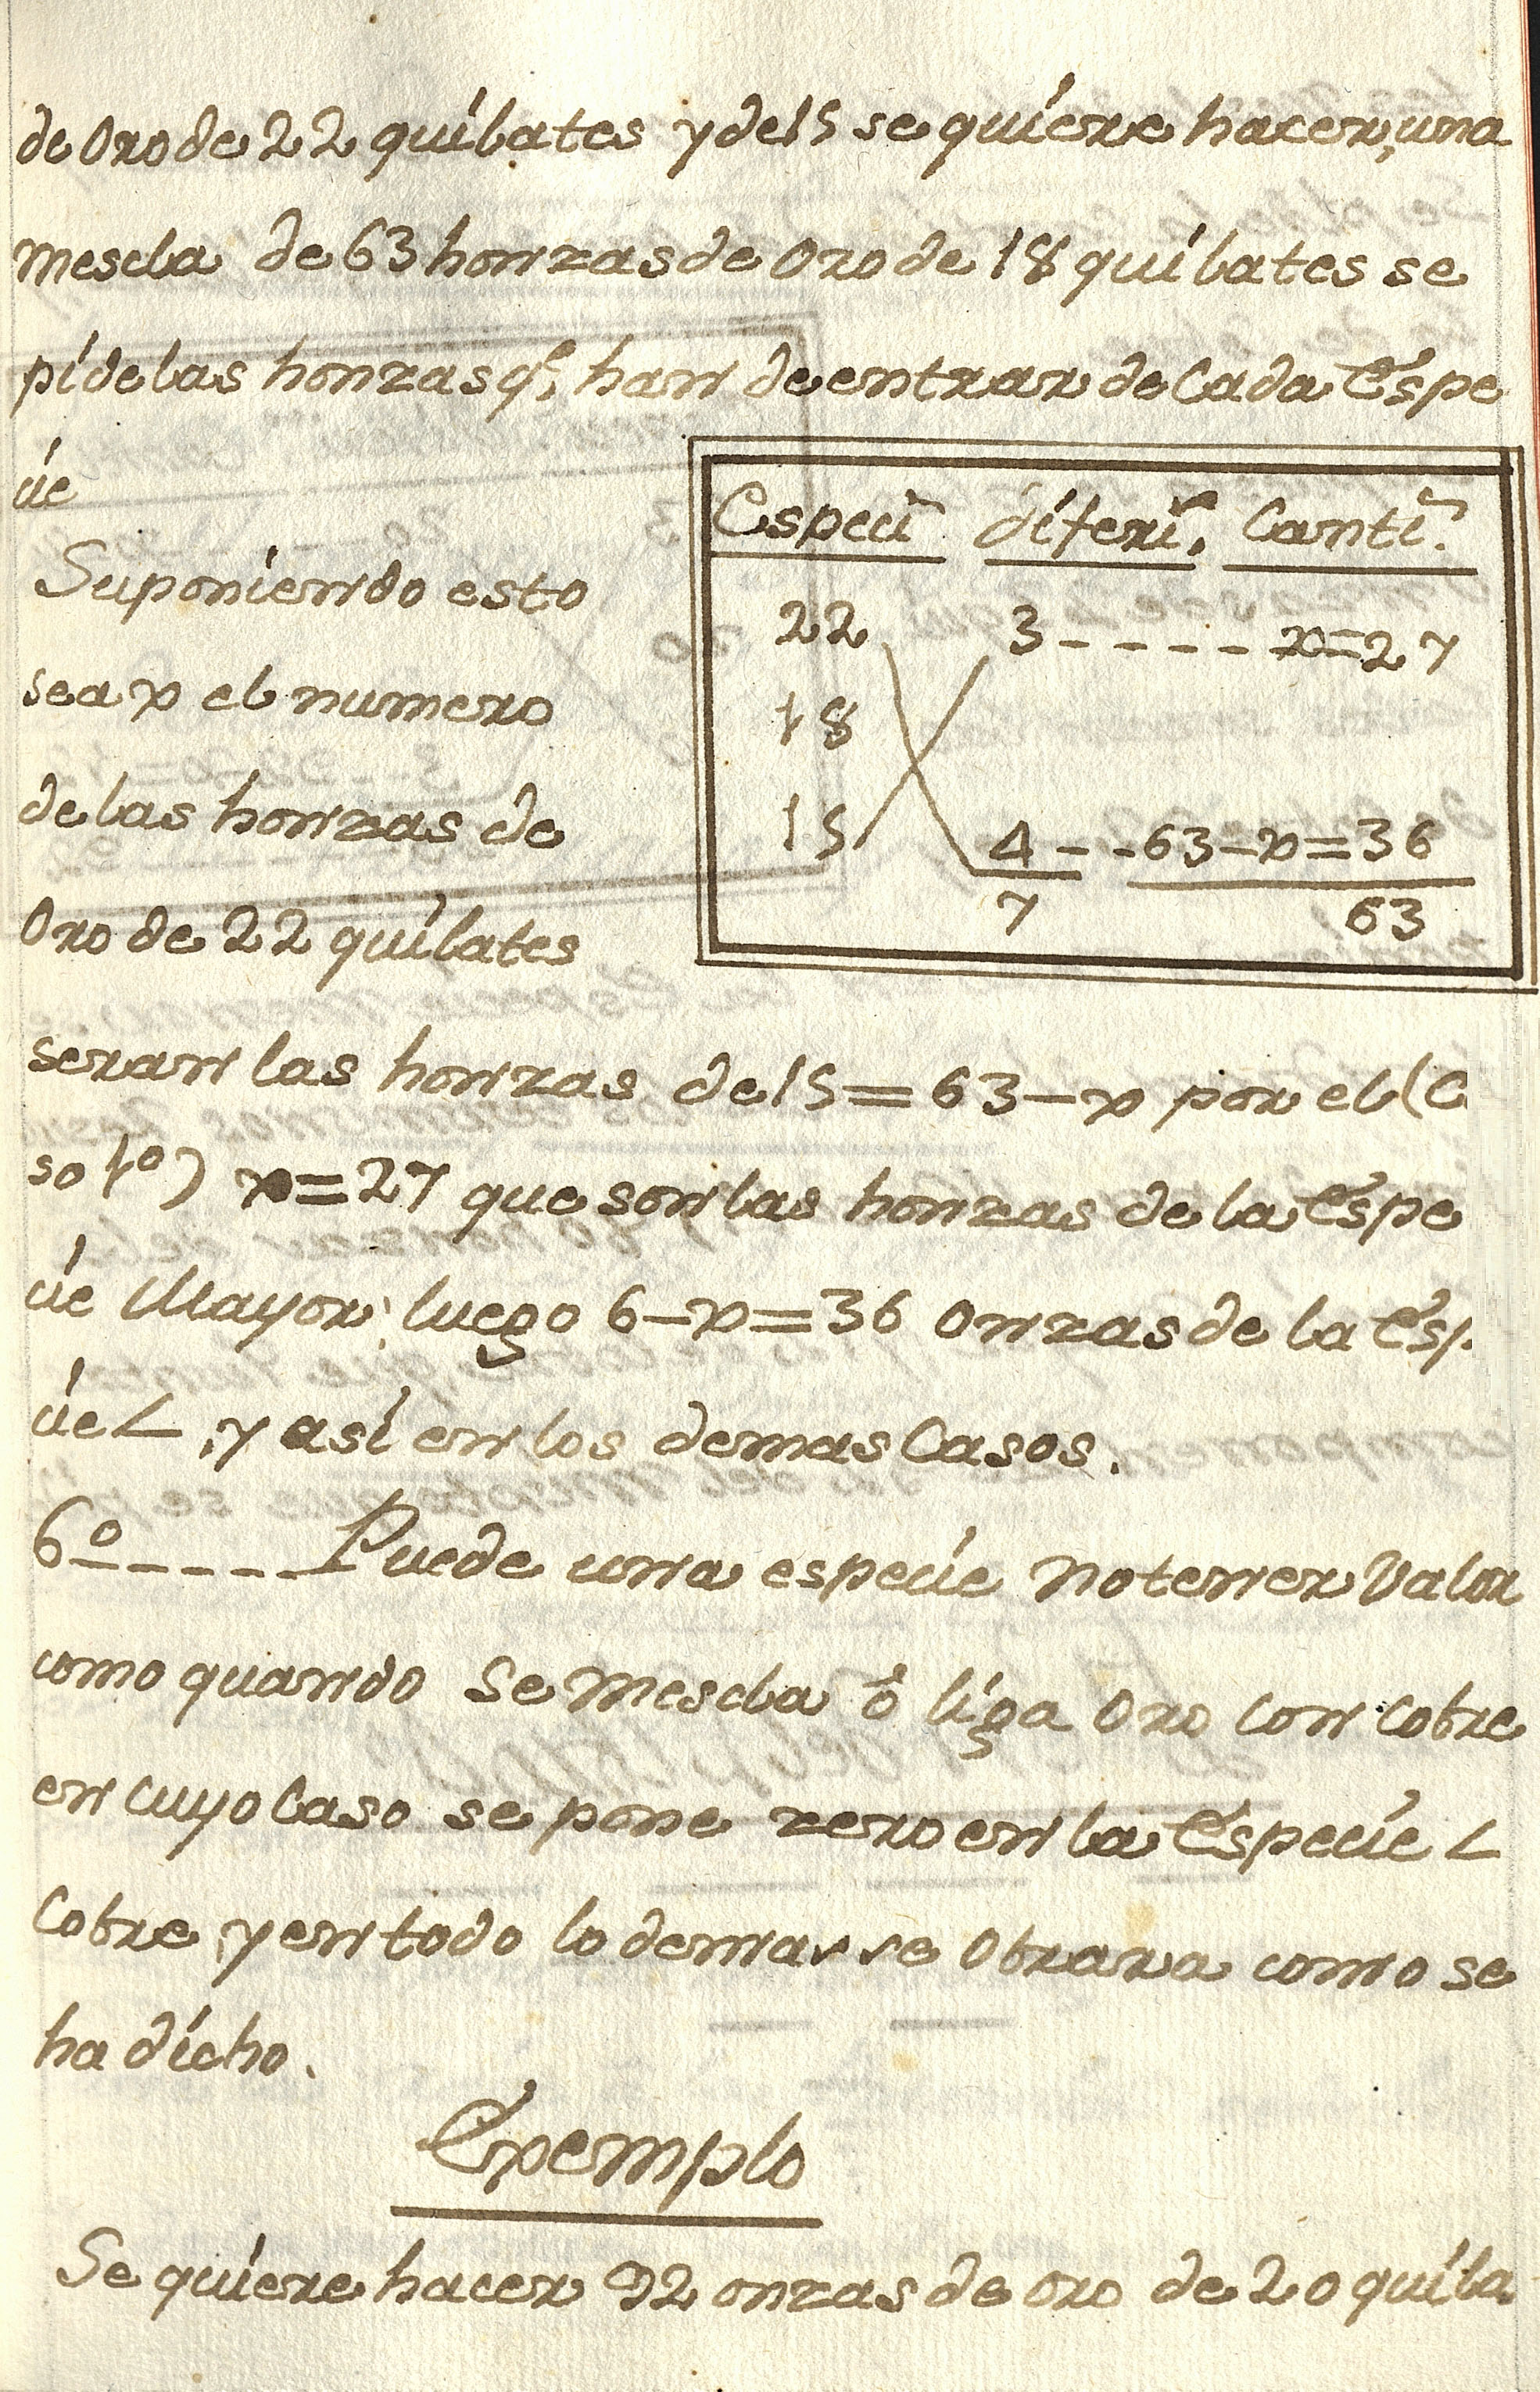 de Oro de 22 quilates y de 15 se quiere hacer, una
mescla de 63 honzas de Oro de 18 quilates se
pide las honzas qe. han de entrar de Cada Espe
cie
Especi diferi. Canti.
22 3 - - - - - x=27
18
15 4 - - 63-x=36
7 63
Suponiendo esto
sea x el numero
de las honzas de
Oro de 22 quilates
seran las honzas de 15=63-x por el (C
so 1º) x=27 que son las honzas de la Espe
cie Mayor, luego 6-x=36 Onzas de la Esp
cie <, y asi en los demas Casos.
6º - - - - - Puede una especie no tener Valor
como quando se mescla ô liga Oro con Cobre
en cuyo Caso se pone zero en la Especie <
Cobre, y en todo lo demas se Obrara como se
ha dicho.
Exemplo
Se quiere hacer 92 onzas de oro de 20 quila